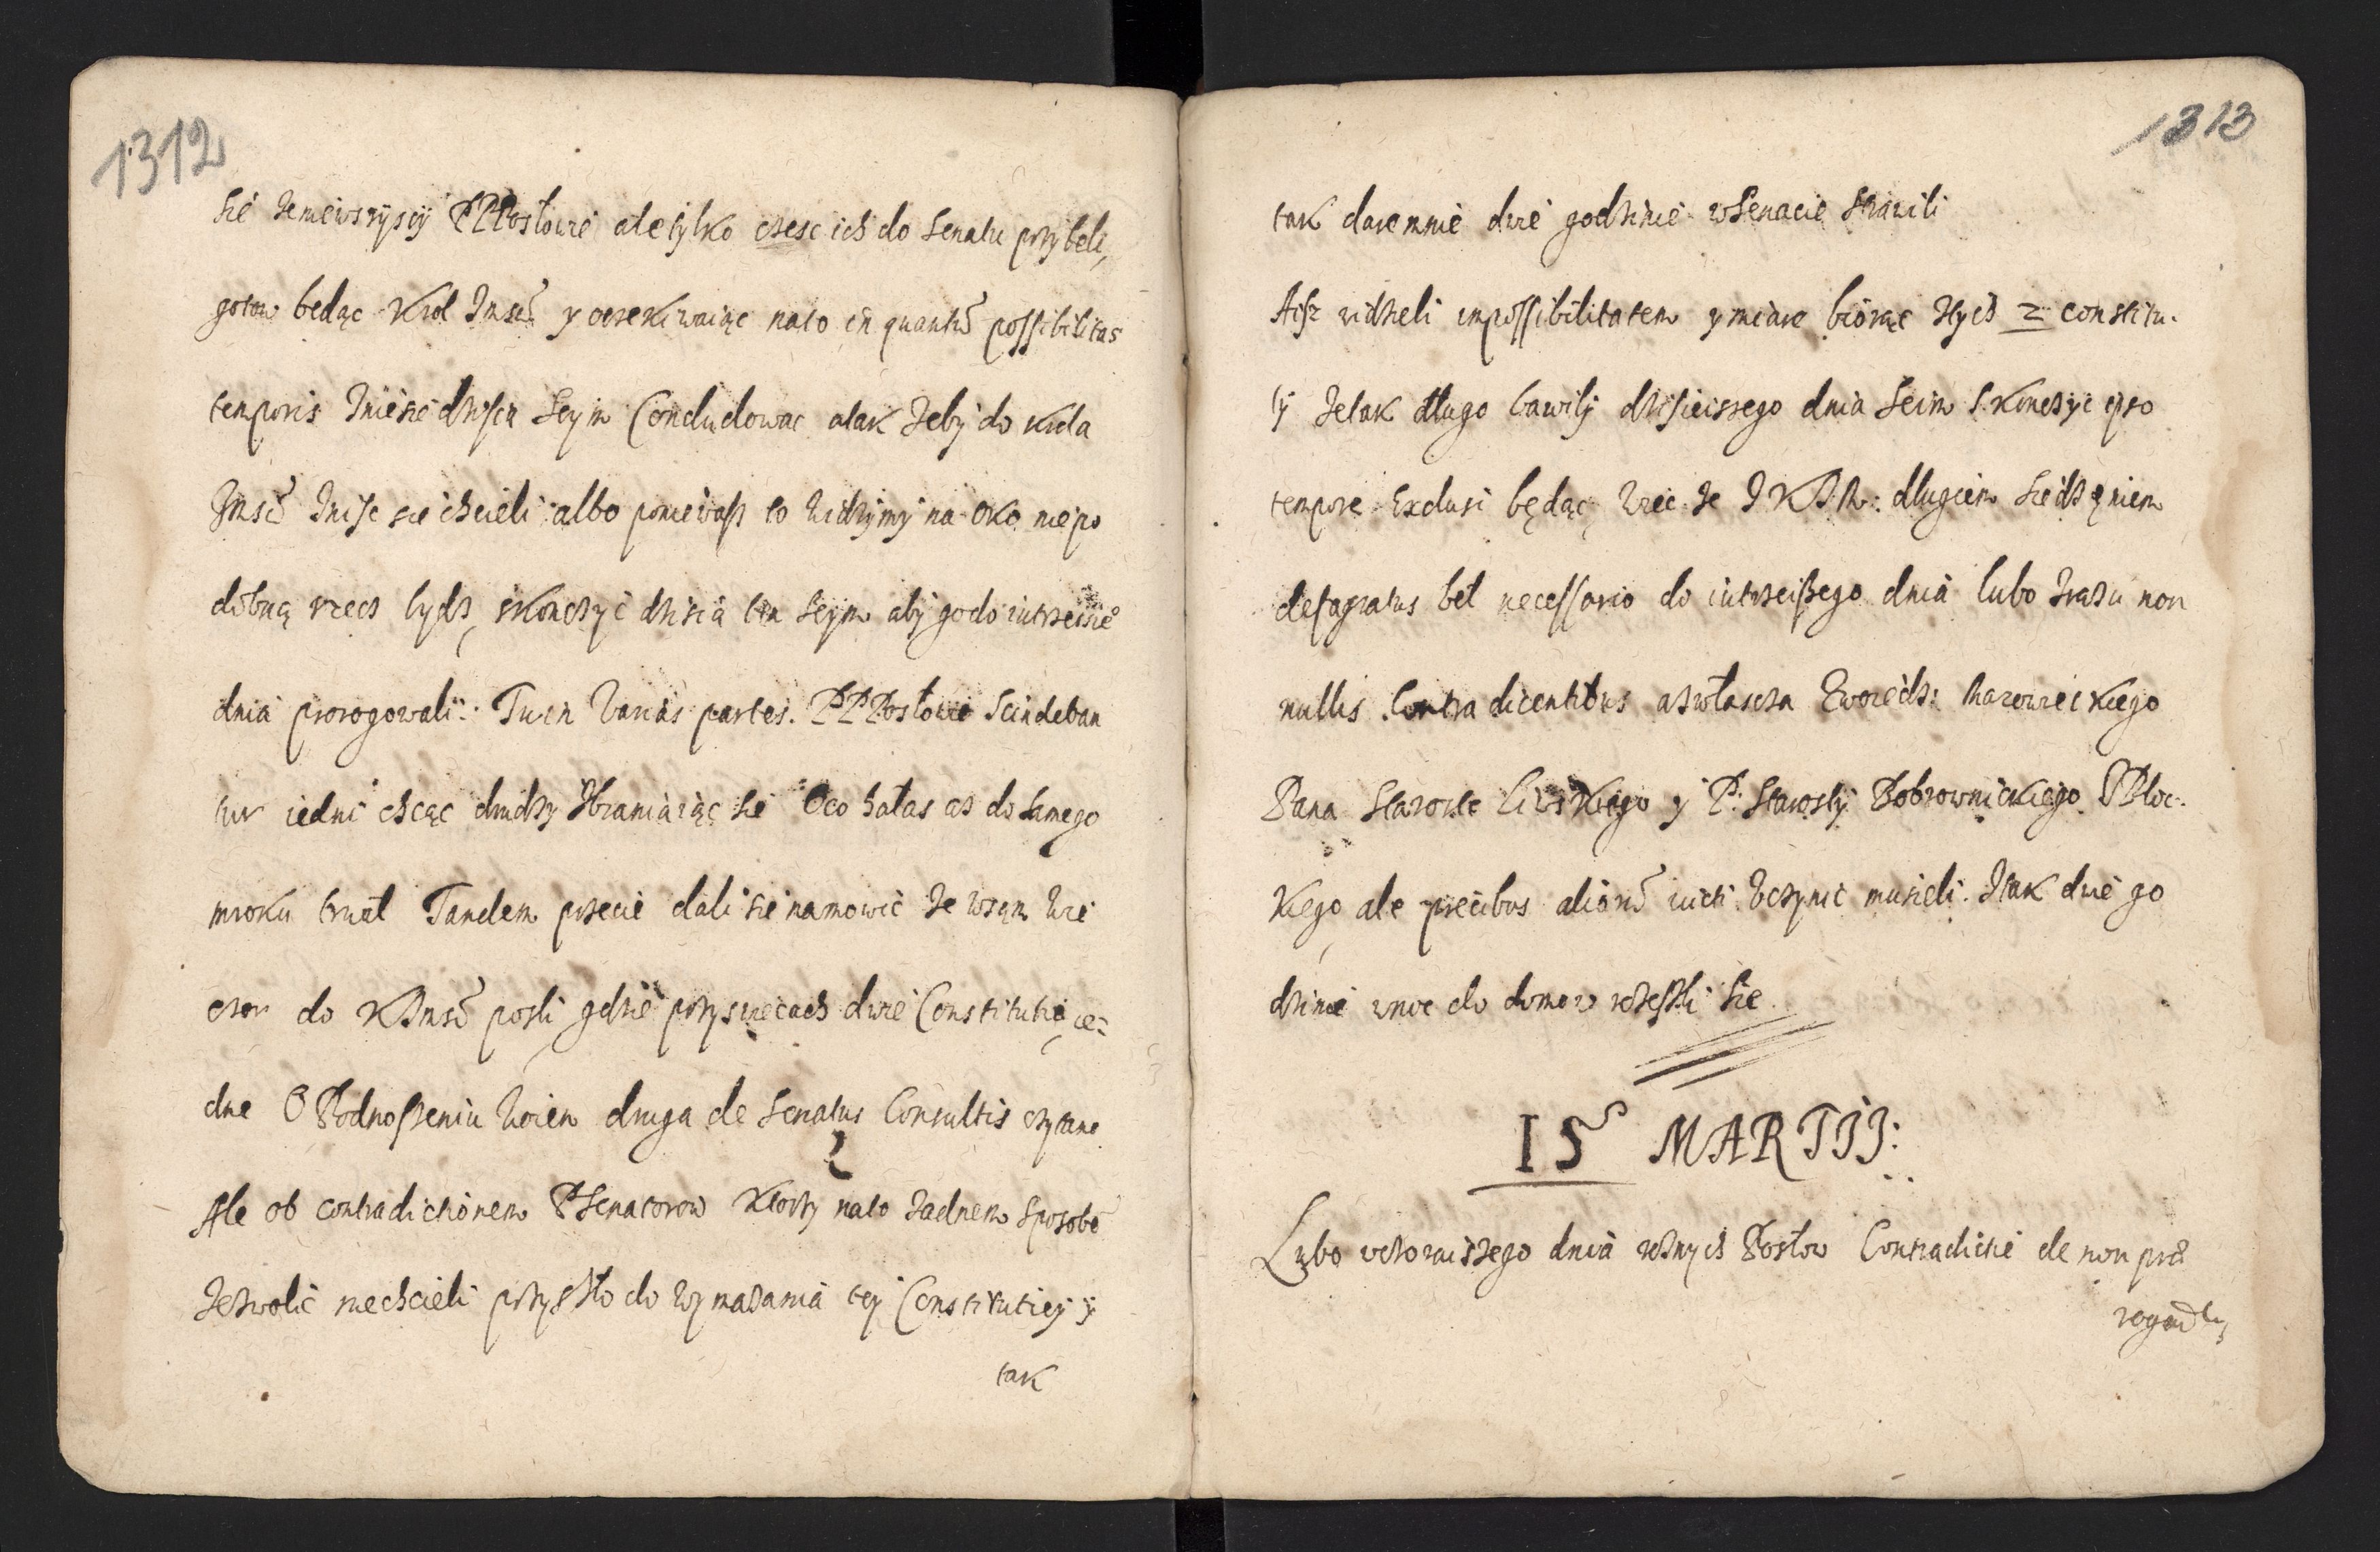 1312
sie zeniewszyscy PPPosłowie ale tylko czesc ich do Senatu przybeli,
gotow będąc Krol Jmsć y oczekiwaiąc nato in quantū possibilitas
temporis zniesie dzisia Seym Concludowac atak żeby do krola
Jmsci znisc sie chcieli albo ponieważ to widzymy na oko niepo
dobną rzecz bydz, skonczyć dzisia ten Seym aby go do iutrzeisze°
dnia prorogowali. Tu in varias partes. PPPosłowie Scindeban
tur iedni chcąc drudzy zbraniaiąc sie Oco hałas az do samego
mroku trwał Tandem przecie dali sie namowić że wsąm wie
czor do KJmsci posli gdzie przy swiecach dwie Constitutie ie=
dne O Podnoszeniu woien druga de Senatus Consultis czytano
Ale ob contradictionem PSenatorow Ktorzy nato zadnem sposobē
zezwolić niechcieli przyszło do wymazania tey Constitutiey y
tak
1313
tak daremnie dwie godzinie w Senacie strawili
Aisz widzieli impossibilitatem y miare biorąc ztych 2 constitu-
ty zetak długo bawiły dzisieiszego dnia Seim skonczyć ipso
tempore Exclusi będąc, wiec że J K J M: długiem siedzęniem
defatigatus beł necessario do iutrzeiszego dnia lubo zrazu non
nullis Contradicentibus azwłascza Ewoiedz: Mazowieckiego
Pana Staroste Liwskiego y P. Starosty Bobrownickiego PPłoc-
kiego ale precibus aliorū victi vczynic musieli. Itak dwie go
dzinie wnoc do domow rozeszli sie
15 MARTII:
Lubo wczoraiszego dnia roznych Posłow Contradictie de non pro